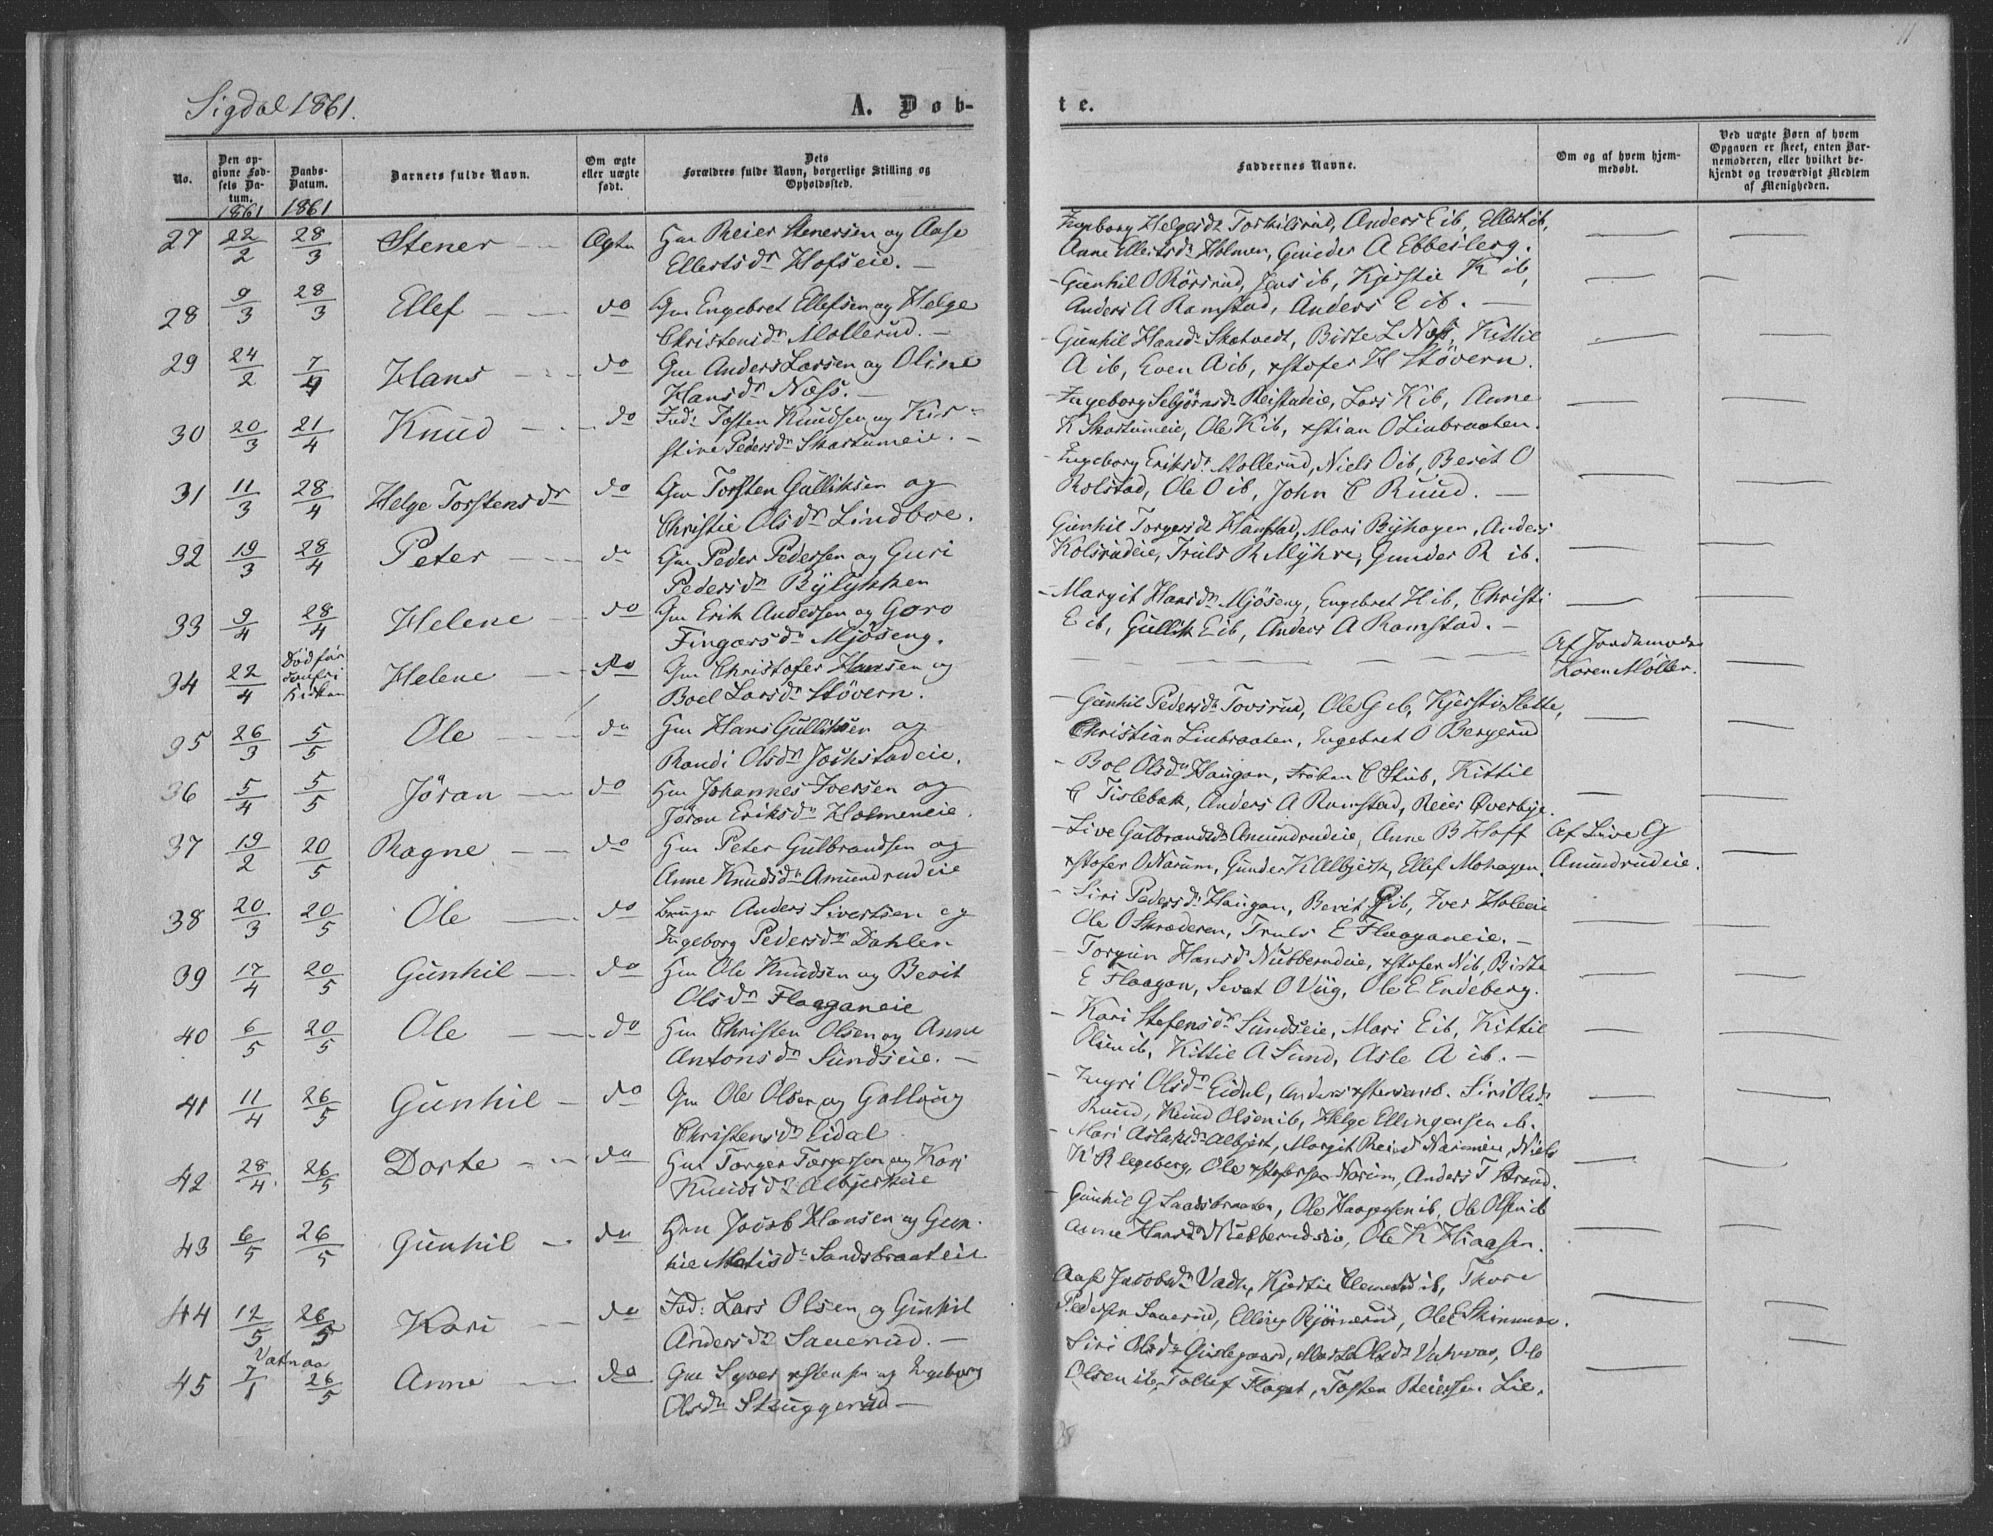 11
Sigdal 1861.
A. Døb-
te.
No.
Den op-
givne Fød-
sels Da-
tum.
1861
Daabs-
Datum.
1861
Barnets fulde Navn.
Om ægte
eller uægte
født.
Dets
Forældres fulde Navn, borgerlige Stilling og
Opholdssted.
Faddernes Navne.
Om og af hvem hjem-
medøbt.
Ved uægte Børn af hvem
Opgaven er skeet, enten Bar-
nemoderen, eller hvilket be-
kjendt og troværdigt Medlem
af Menigheden.
27 22/2 28/3 Stener Ægte Hm Reier Stenersen og Aase
Ellertsdr Hofseie.
Ingeborg Helgesdr Toskilsrud, Anders E ib, Ellert ib,
Anne Ellertsdr Holmen, Gunder A Ebbesberg.
28 9/3 28/3 Ellef do Gm Engebret Ellefsen og Helge
Christensdr Mollerud.
Gunhil O Rörsrud, Jens ib, Kjerstie K ib,
Anders A Ramstad, Anders E ib.
29 24/2 7/4 Hans do Gm Anders Larsen og Oline
Hansdr Næss.
Gunhil Hansdr Skatvedt, Birte L Næss, Kittil
A ib, Even A ib, xstofer H Støvern.
30 20/3 21/4 Knud do Ind: Tosten Knudsen og Kir-
stine Pedersdr Skartumeie.
Ingeborg Sebjörnsdr Reistadeie, Lars K ib, Anne
K Skartumeie, Ole K ib, xstian O Linbraaten.
31 11/3 28/4 Helge Torstensdr do Gm Torsten Gulliksen og
Christie Olsdr Lindboe.
Ingeborg Eriksdr Mollerud, Niels O ib, Berit O
Rolstad, Ole O ib, John C Ruud.
32 19/3 28/4 Peter do Gm Peder Pedersen og Guri
Pedersdr Bylykken
Gunhil Torgersdr Hanstad, Mari Byhagen, Anders
Kolsrudeie, Truls R Myhre, Gunder R ib.
33 9/4 28/4 Helene do Gm Erik Andersen og Goro
Fingarsdr Mjöseng.
Margit Hansdr Mjöseng, Engebret H ib, Christi
E ib, Gullik E ib, Anders A Ramstad.
34 22/4 Död før
Kirken Helene do Gm Christofer Hansen og
Boel Larsdr Støvern.
Af Jordemoder
Karen Møller.
35 26/3 5/5 Ole do Hm Hans Gulliksen og
Randi Olsdr Jockstadeie.
Gunhil Pedersdr Tovsrud, Ole G ib, Kjersti Slette,
Christian Linbraaten, Ingebret O Bergerud
36 5/4 5/5 Jöran do Hm Johannes Iversen og
Jöran Eriksdr Holmeneie.
Bol Olsdr Haugan, Fröben C Stub, Kittil
C Tislebak, Anders A Ramstad, Reier Øverbye.
37 19/2 20/5 Ragne do Hm Peter Gulbrandsen og
Anne Knudsdr Amundrudeie
Live Gulbrandsdr Amundrudeie, Anne B Hoff
xstofer O Narum, Gunder K Albjersk, Ellef Mohagen.
Af Live G
Amundrudeie.
38 20/3 20/5 Ole do Bruger Anders Sivertsen og
Ingeborg Pedersdr Dahlen
Siri Pedersdr Haugan, Berit P ib, Iver Holeeie
Ole O Skræderen, Truls E Flaaganeie.
39 17/4 20/5 Gunhil do Hm Ole Knudsen og Berit
Olsdr Flaaganeie
Torgun Hansdr Nubberudeie, xstofer N ib, Birte
E Flaagan, Sevat O Viig, Ole E Endeberg.
40 6/5 20/5 Ole do Hm Christen Olsen og Anne
Antonsdr Sundseie.
Kari Stefensdr Sundseie, Mari E ib, Kittil
Olsen ib, Kittil A Sund, Asle A ib.
41 11/4 26/5 Gunhil do Gm Ole Olsen og Gollaug
Christensdr Eidal
Ingri Olsdr Eidal, Anders xstensen ib. Siri Olsdr
Ruud, Knud Olsen ib, Helge Ellingersen ib.
42 28/4 26/5 Dorte do Hm Torger Torgersen og Kari
Knudsdr Albjerskeie
Mari Aslaksdr Albjerk, Margit Narumeie, Niels
K Rlegeberg, Ole xstofersen Narum, Anders T Strand.
43 6/5 26/5 Gunhil do Hm Jacob Hansen og Gun-
hil Matisdr Sandsbraateeie
Gunhil G Sandsbraaten, Ole Haagensen ib, Ole Olsen ib
Anne Hansdr Nubberudeie, Ole K Haasen.
44 12/5 26/5 Kari do Ind: Lars Olsen og Gunhil
Andersdr Sauerud.
Aase Jacobsdr Vadn, Kjerstie Clemensdr ib, Thore
Pedersen Sauerud, Elling Bjørnerud, Ole E Skinnæs.
45 Vatnaas
7/1 26/5 Anne do Gm Syver xstensen og Ingeborg
Olsdr Skuggerud
Siri Olsdr Guslegaard, Marte Olsdr Vatnaas, Ole
Olsen ib, Tollef Flaget, Tosten Reiersen Lie.